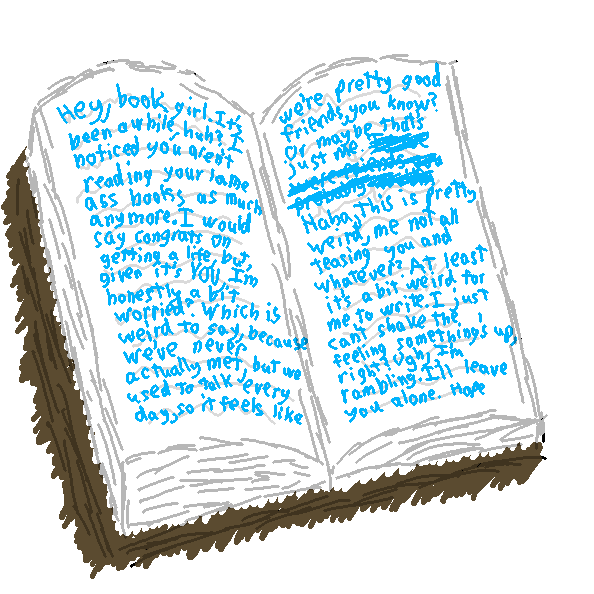 Hey, book girl. It's
been awhile, huh? I
noticed you aren't
reading your lame
ass books as much
anymore. I would
say congrats on
getting a life, but,
given it's YOU, I'm
honestly a bit
worried. Which is
weird to say, because
we've never
actually met, but we
used to talk every
day, so it feels like
we're pretty good
friends, you know?
Or maybe that's
just me.
Haha, this is pretty
weird, me not all
teasing you and
whatever. At least
it's a bit weird for
me to write. I just
can't shake the
feeling something's up,
right? Ugh, I'm
rambling. I'll leave
you alone. Hope